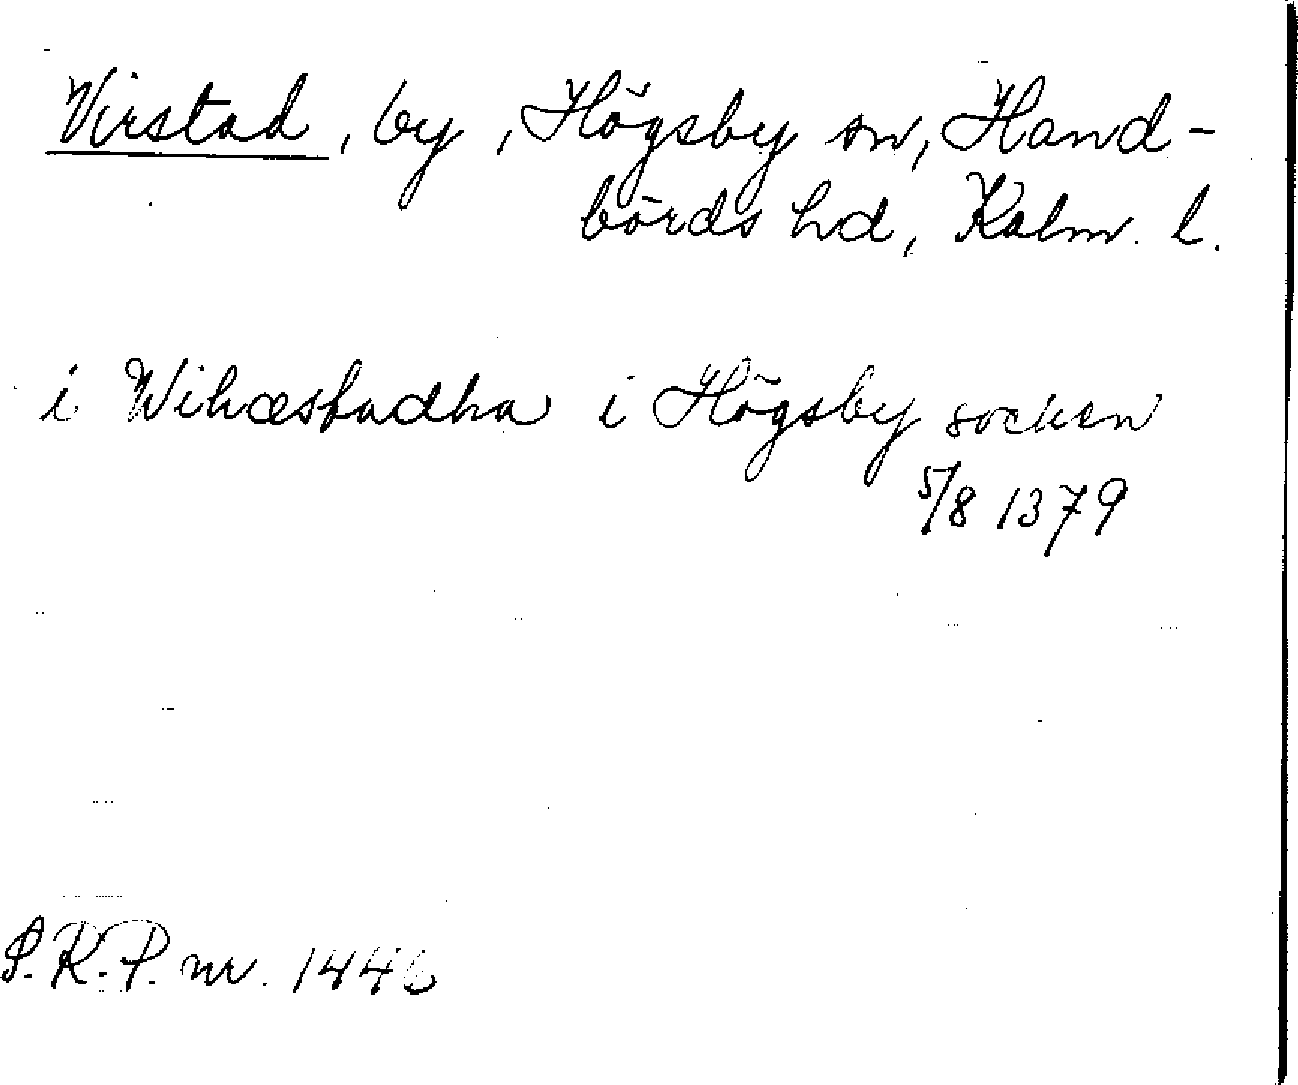 Virstad, by, Högsby sn, Hand-
börds hd, Kalm. l.
i Wihæstadha i Högsby socken
5/8 1379
S.R.P. nr. 1446